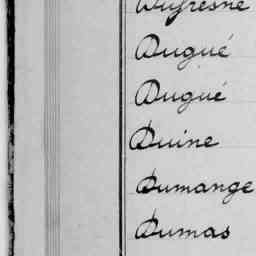 Dufresne
Dugué
Dugué
Duine
Dumange
Dumas